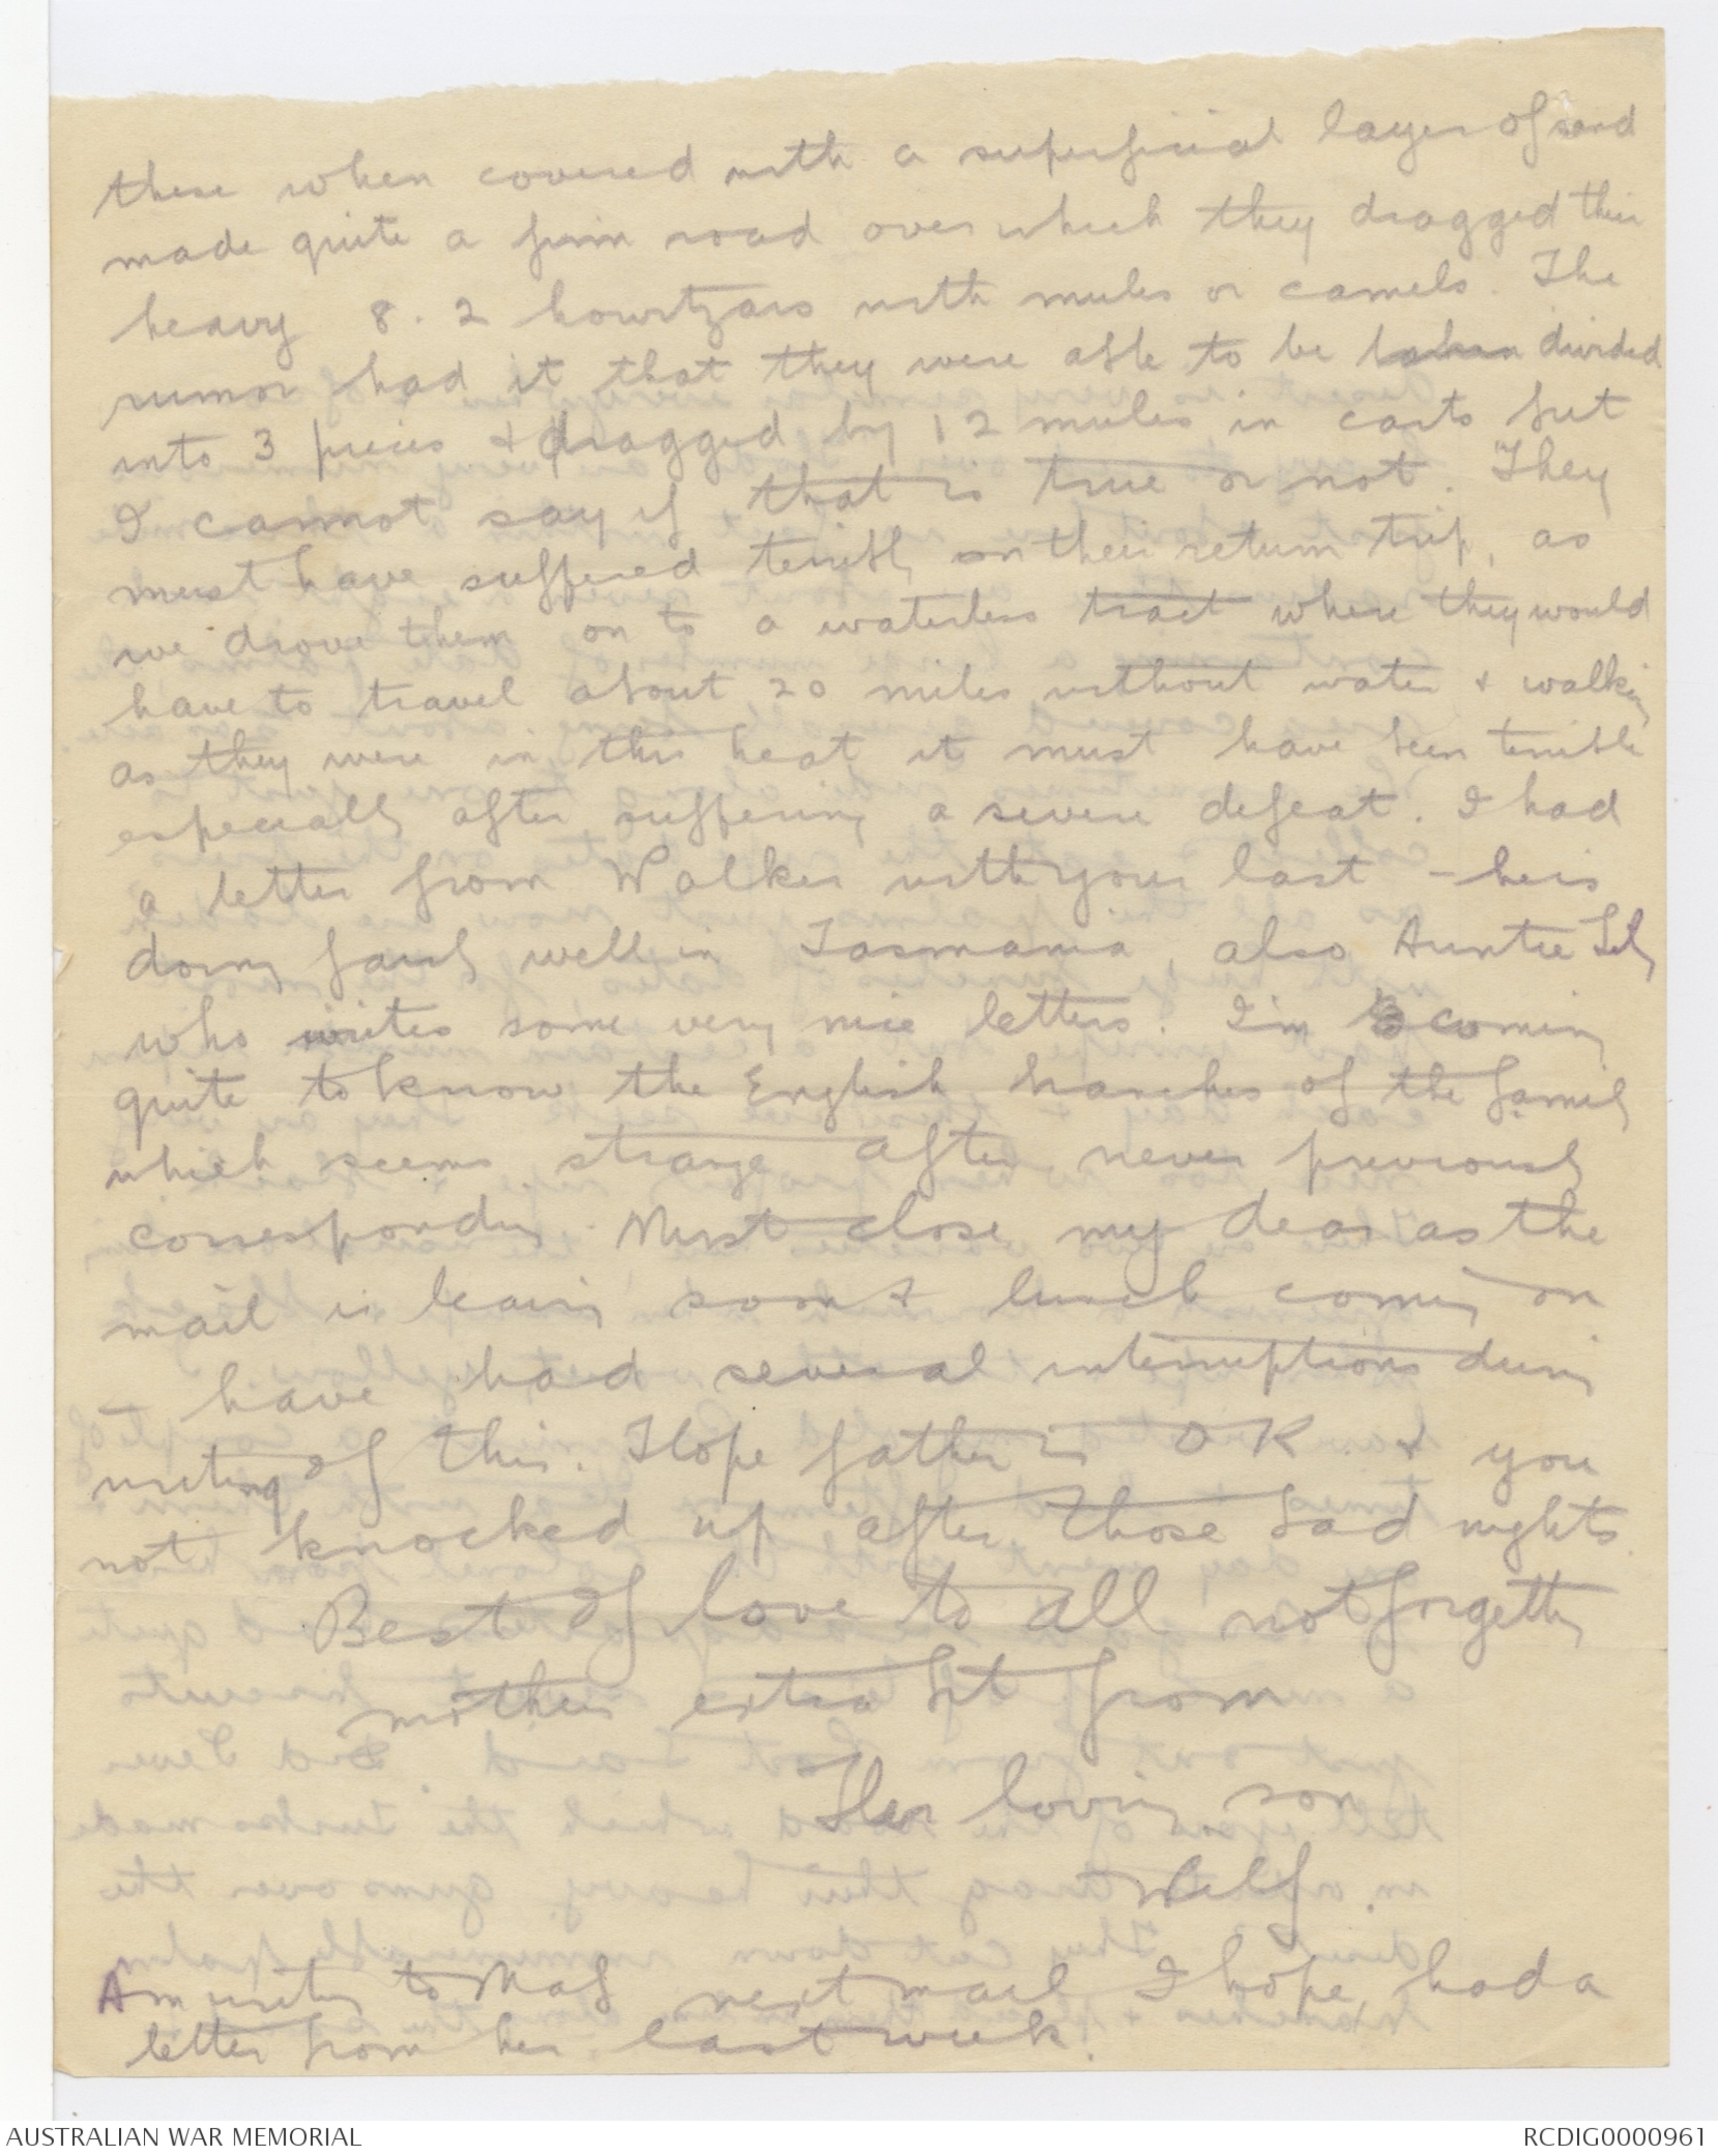 these when covered with a superficial layer of sand
made quite a firm road over which they dragged their
heavy 8.2 howitzars with mules or camels. The
rumor had it that they were able to be taken divided
into 3 pieces & dragged by 12 mules in carts but
I cannot say if that is true or not. They
must have suffered terribly on their return trip, as
we drove them on to a waterless tract where they would
have to travel about 20 miles without water & walking
as they were in this heat it must have been terrible
especially after suffering a severe defeat. I had
a letter from Walker with your last - he is
doing fairly well in Tasmania, also Auntie Lily
who writes some very nice letters. I'm becoming
quite to know the English branches of the family
which seems strange after never previously
corresponding. Must close my dear as the
mail is leaving soon & lunch coming on
- have had several interruptions during
writing of this. Hope father is OK. & you
not knocked up after those bad nights.
Best of love to all not forgetting
mothers extra bit from
Her loving son
Wilf.
Am writing to Mab next mail I hope, had a
letter from her last week.
AUSTRALIAN WAR MEMORIAL
RCDIG0000961